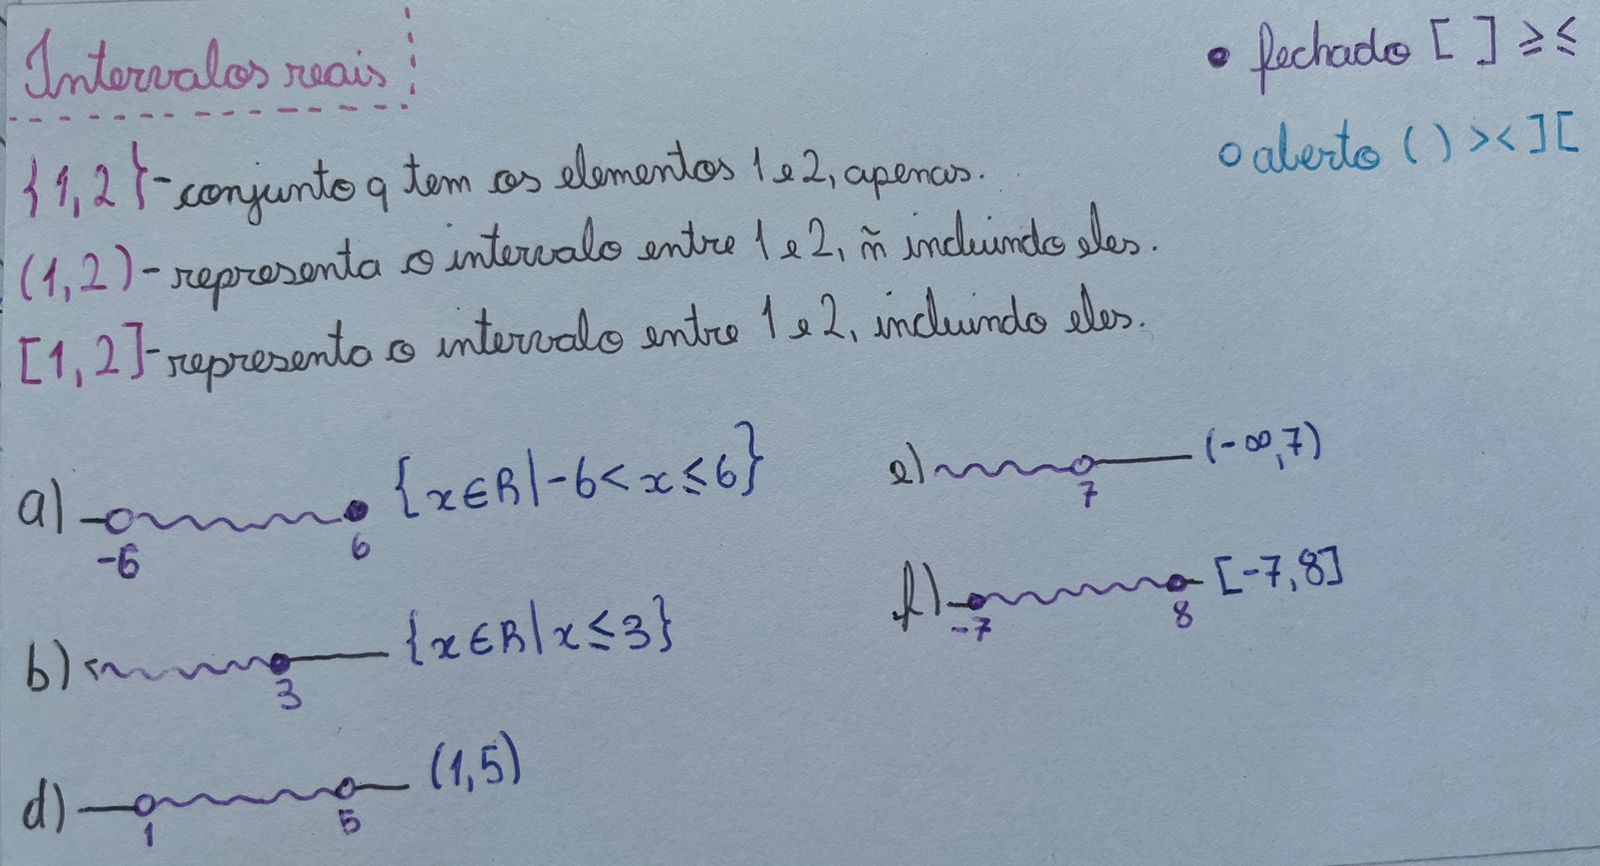 Intervalos reais
• fechado [ ] ≥ ≤
o aberto ( ) > < ] [
{1, 2} - conjunto q tem os elementos 1 e 2, apenas.
(1, 2) - representa o intervalo entre 1 e 2, ñ incluindo eles.
[1, 2] - representa o intervalo entre 1 e 2, incluindo eles.
a) -6 6 {x∈R | -6 < x ≤ 6}
b) 3 {x∈R | x ≤ 3}
d) 1 5 (1, 5)
e) 7 (-∞, 7)
f) -7 8 [-7, 8]